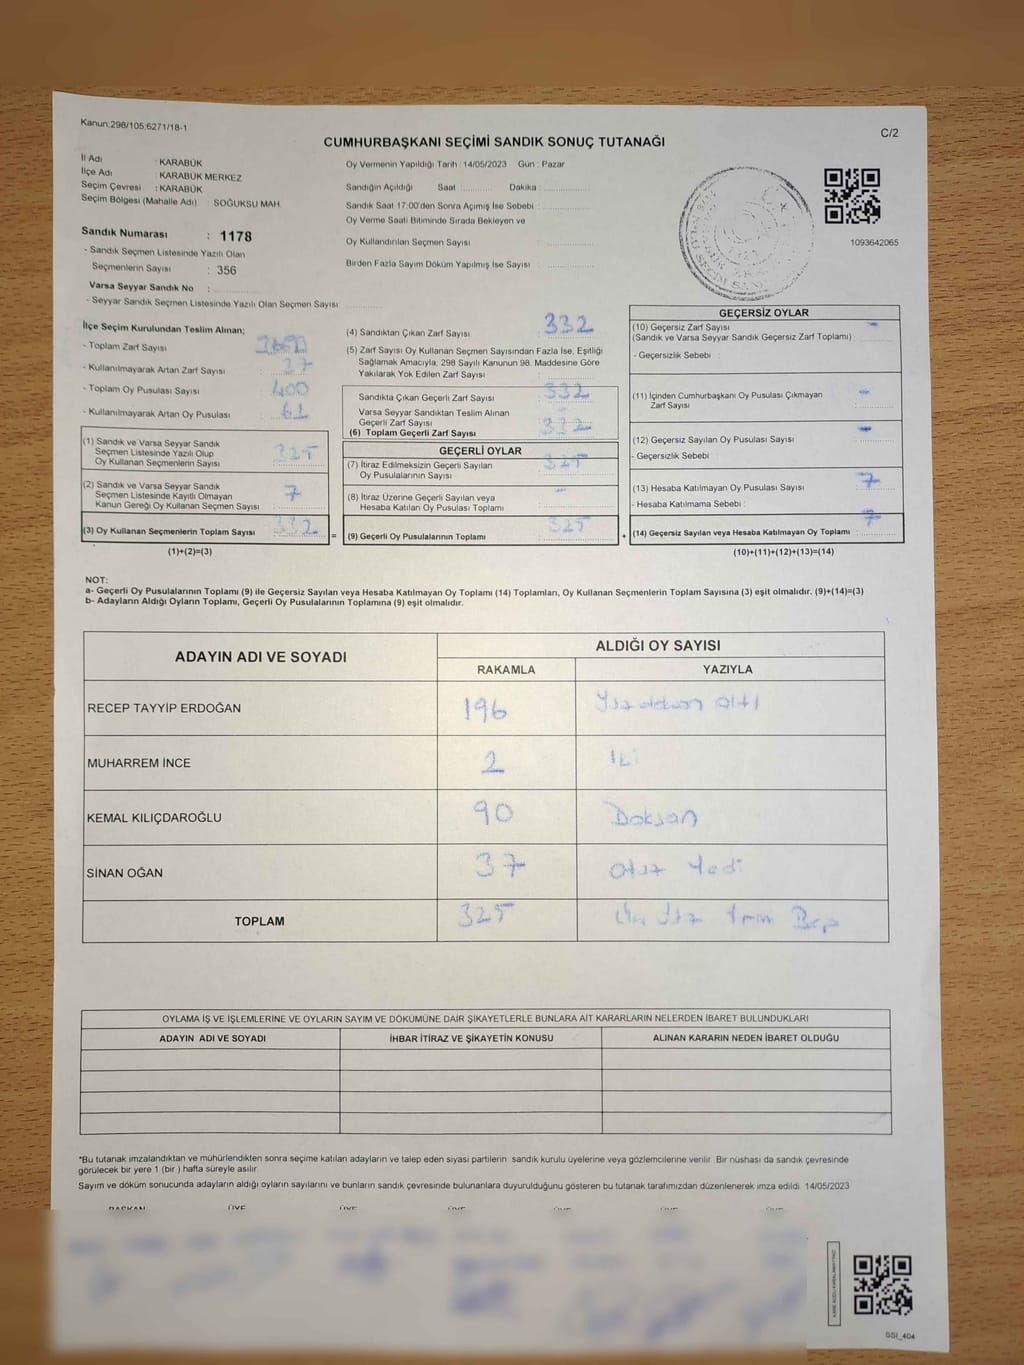 Kanun:298/105;6271/18-1
C/2
CUMHURBAŞKANI SEÇİMİ SANDIK SONUÇ TUTANAĞI
İl Adı : KARABÜK
İlçe Adı : KARABÜK MERKEZ
Seçim Çevresi : KARABÜK
Seçim Bölgesi (Mahalle Adı) SOĞUKSU MAH
Sandık Numarası : 1178
- Sandık Seçmen Listesinde Yazılı Olan
Seçmenlerin Sayısı : 356
Varsa Seyyar Sandık No :
- Seyyar Sandık Seçmen Listesinde Yazılı Olan Seçmen Sayısı
Oy Vermenin Yapıldığı Tarih : 14/05/2023 Gün : Pazar
Sandığın Açıldığı Saat Dakika :
Sandık Saat 17.00'den Sonra Açımış İse Sebebi :
Oy Verme Saati Bitiminde Sırada Bekleyen ve
Oy Kullandırılan Seçmen Sayısı :
Birden Fazla Sayım Döküm Yapılmış İse Sayısı :
1093642065
İlçe Seçim Kurulundan Teslim Alınan;
- Toplam Zarf Sayısı :
- Kullanılmayarak Artan Zarf Sayısı :
- Toplam Oy Pusulası Sayısı : 400
- Kullanılmayarak Artan Oy Pusulası : 61
(1) Sandık ve Varsa Seyyar Sandık
Seçmen Listesinde Yazılı Olup
Oy Kullanan Seçmenlerin Sayısı 325
(2) Sandık ve Varsa Seyyar Sandık
Seçmen Listesinde Kayıtlı Olmayan
Kanun Gereği Oy Kullanan Seçmen Sayısı 7
(3) Oy Kullanan Seçmenlerin Toplam Sayısı 332
(1)+(2)=(3)
(4) Sandıktan Çıkan Zarf Sayısı 332
(5) Zarf Sayısı Oy Kullanan Seçmen Sayısından Fazla İse, Eşitliği
Sağlamak Amacıyla; 298 Sayılı Kanunun 98. Maddesine Göre
Yakılarak Yok Edilen Zarf Sayısı :
Sandıkta Çıkan Geçerli Zarf Sayısı 332
Varsa Seyyar Sandıktan Teslim Alınan
Geçerli Zarf Sayısı -
(6) Toplam Geçerli Zarf Sayısı 332
GEÇERLİ OYLAR
(7) İtiraz Edilmeksizin Geçerli Sayılan
Oy Pusulalarının Sayısı 325
(8) İtiraz Üzerine Geçerli Sayılan veya
Hesaba Katılan Oy Pusulası Toplamı -
= (9) Geçerli Oy Pusulalarının Toplamı 325
GEÇERSİZ OYLAR
(10) Geçersiz Zarf Sayısı -
(Sandık ve Varsa Seyyar Sandık Geçersiz Zarf Toplamı)
- Geçersizlik Sebebi :
(11) İçinden Cumhurbaşkanı Oy Pusulası Çıkmayan
Zarf Sayısı -
(12) Geçersiz Sayılan Oy Pusulası Sayısı -
- Geçersizlik Sebebi :
(13) Hesaba Katılmayan Oy Pusulası Sayısı 7
- Hesaba Katılmama Sebebi :
+ (14) Geçersiz Sayılan veya Hesaba Katılmayan Oy Toplamı 7
(10)+(11)+(12)+(13)=(14)
NOT:
a- Geçerli Oy Pusulalarının Toplamı (9) ile Geçersiz Sayılan veya Hesaba Katılmayan Oy Toplamı (14) Toplamları, Oy Kullanan Seçmenlerin Toplam Sayısına (3) eşit olmalıdır. (9)+(14)=(3)
b- Adayların Aldığı Oyların Toplamı, Geçerli Oy Pusulalarının Toplamına (9) eşit olmalıdır.
ADAYIN ADI VE SOYADI
ALDIĞI OY SAYISI
RAKAMLA YAZIYLA
RECEP TAYYİP ERDOĞAN 196 Yüz doksan altı
MUHARREM İNCE 2 İki
KEMAL KILIÇDAROĞLU 90 Doksan
SİNAN OĞAN 37 Otuz Yedi
TOPLAM 325 Üç Yüz Yirmi Beş
OYLAMA İŞ VE İŞLEMLERİNE VE OYLARIN SAYIM VE DÖKÜMÜNE DAİR ŞİKAYETLERLE BUNLARA AİT KARARLARIN NELERDEN İBARET BULUNDUKLARI
ADAYIN ADI VE SOYADI İHBAR İTİRAZ VE ŞİKAYETİN KONUSU ALINAN KARARIN NEDEN İBARET OLDUĞU
*Bu tutanak imzalandıktan ve mühürlendikten sonra seçime katılan adayların ve talep eden siyasi partilerin sandık kurulu üyelerine veya gözlemcilerine verilir. Bir nüshası da sandık çevresinde
görülecek bir yere 1 (bir ) hafta süreyle asılır.
Sayım ve döküm sonucunda adayların aldığı oyların sayılarını ve bunların sandık çevresinde bulunanlara duyurulduğunu gösteren bu tutanak tarafımızdan düzenlenerek imza edildi. 14/05/2023
BAŞKAN ÜYE ÜYE ÜYE ÜYE ÜYE ÜYE
SSI_404